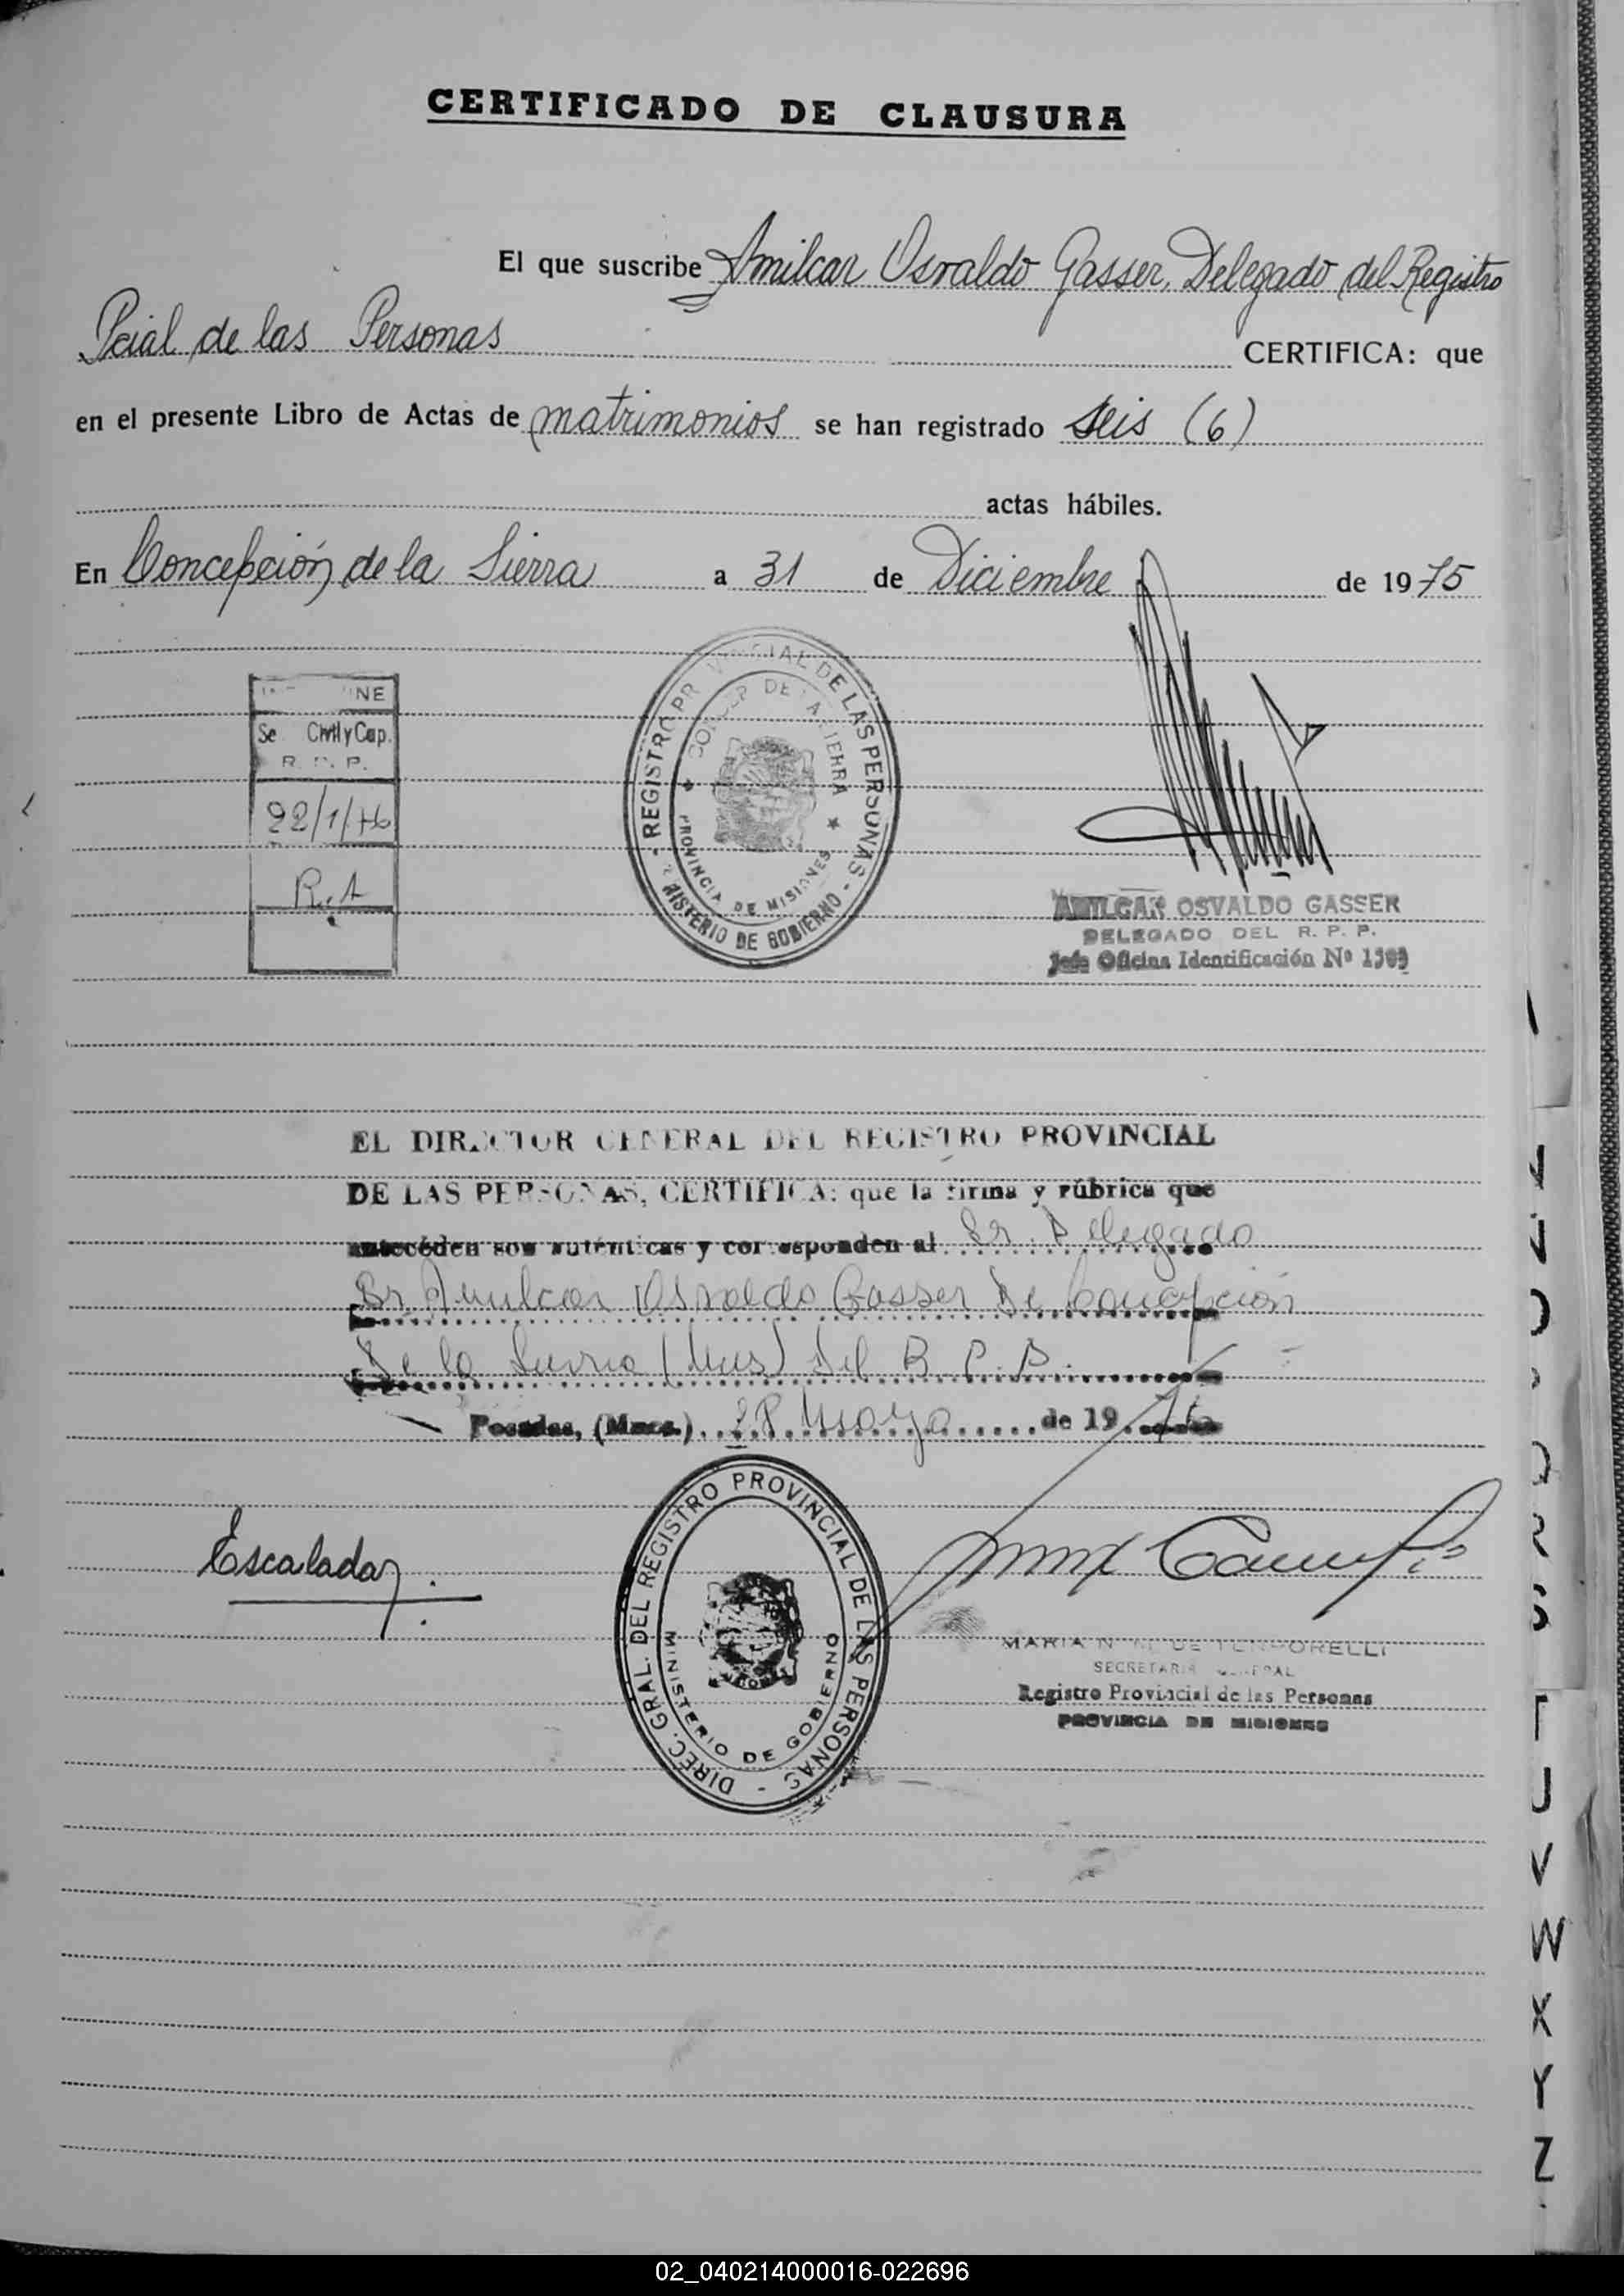 CERTIFICADO DE CLAUSURA
El que suscribe Amilcar Osvaldo Gasser, Delegado del Registro
Pcial de las Personas CERTIFICA: que
en el presente Libro de Actas de matrimonios se han registrado seis (6)
actas hábiles.
En Concepción de la Sierra a 31 de Diciembre de 1975
NE
Civil y Cap.
R. P. P.
22/1/76
R.A
REGISTRO PROVINCIAL DE LAS PERSONAS - MINISTERIO DE GOBIERNO -
CONCEP DE LA SIERRA
PROVINCIA DE MISIONES
AMILCAR OSVALDO GASSER
DELEGADO DEL R. P. P.
Jefe Oficina Identificación Nº 1509
EL DIRECTOR GENERAL DEL REGISTRO PROVINCIAL
DE LAS PERSONAS, CERTIFICA: que la firma y rúbrica que
anteceden son auténticas y corresponden al Sr. Delegado
Sr. Amilcar Osvaldo Gasser de Concepción
de la Sierra (Mnes) del R. P. P.
Posadas, (Mnes.) 28 Mayo de 1976
Escalada
DIREC. GRAL. DEL REGISTRO PROVINCIAL DE LAS PERSONAS -
MINISTERIO DE GOBIERNO
MARIA N. DE
SECRETARIA GENERAL
Registro Provincial de las Personas
PROVINCIA DE MISIONES
T
U
V
W
X
Y
Z
02_040214000016-022696